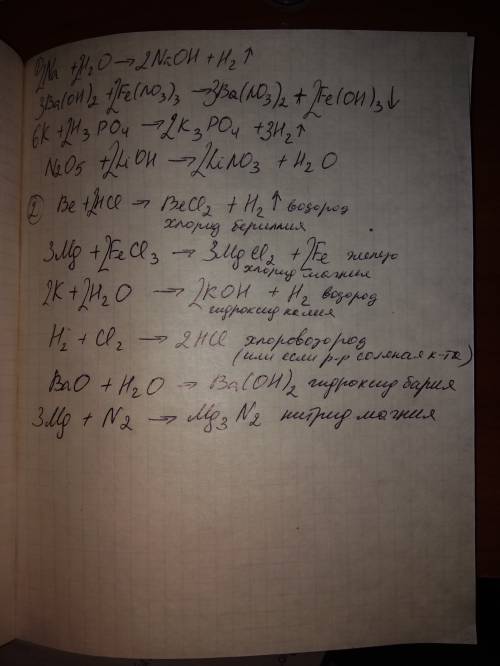 1) 2Na + 2H2O → 2NaOH + H2↑
3Ba(OH)2 + 2Fe(NO3)3 → 3Ba(NO3)2 + 2Fe(OH)3↓
6K + 2H3PO4 → 2K3PO4 + 3H2↑
N2O5 + 2LiOH → 2LiNO3 + H2O
2) Be + 2HCl → BeCl2 + H2↑ водород
хлорид бериллия
3Mg + 2FeCl3 → 3MgCl2 + 2Fe железо
хлорид магния
2K + 2H2O → 2KOH + H2 водород
гидроксид калия
H2 + Cl2 → 2HCl хлороводород
(или если р-р соляная к-та)
BaO + H2O → Ba(OH)2 гидроксид бария
3Mg + N2 → Mg3N2 нитрид магния